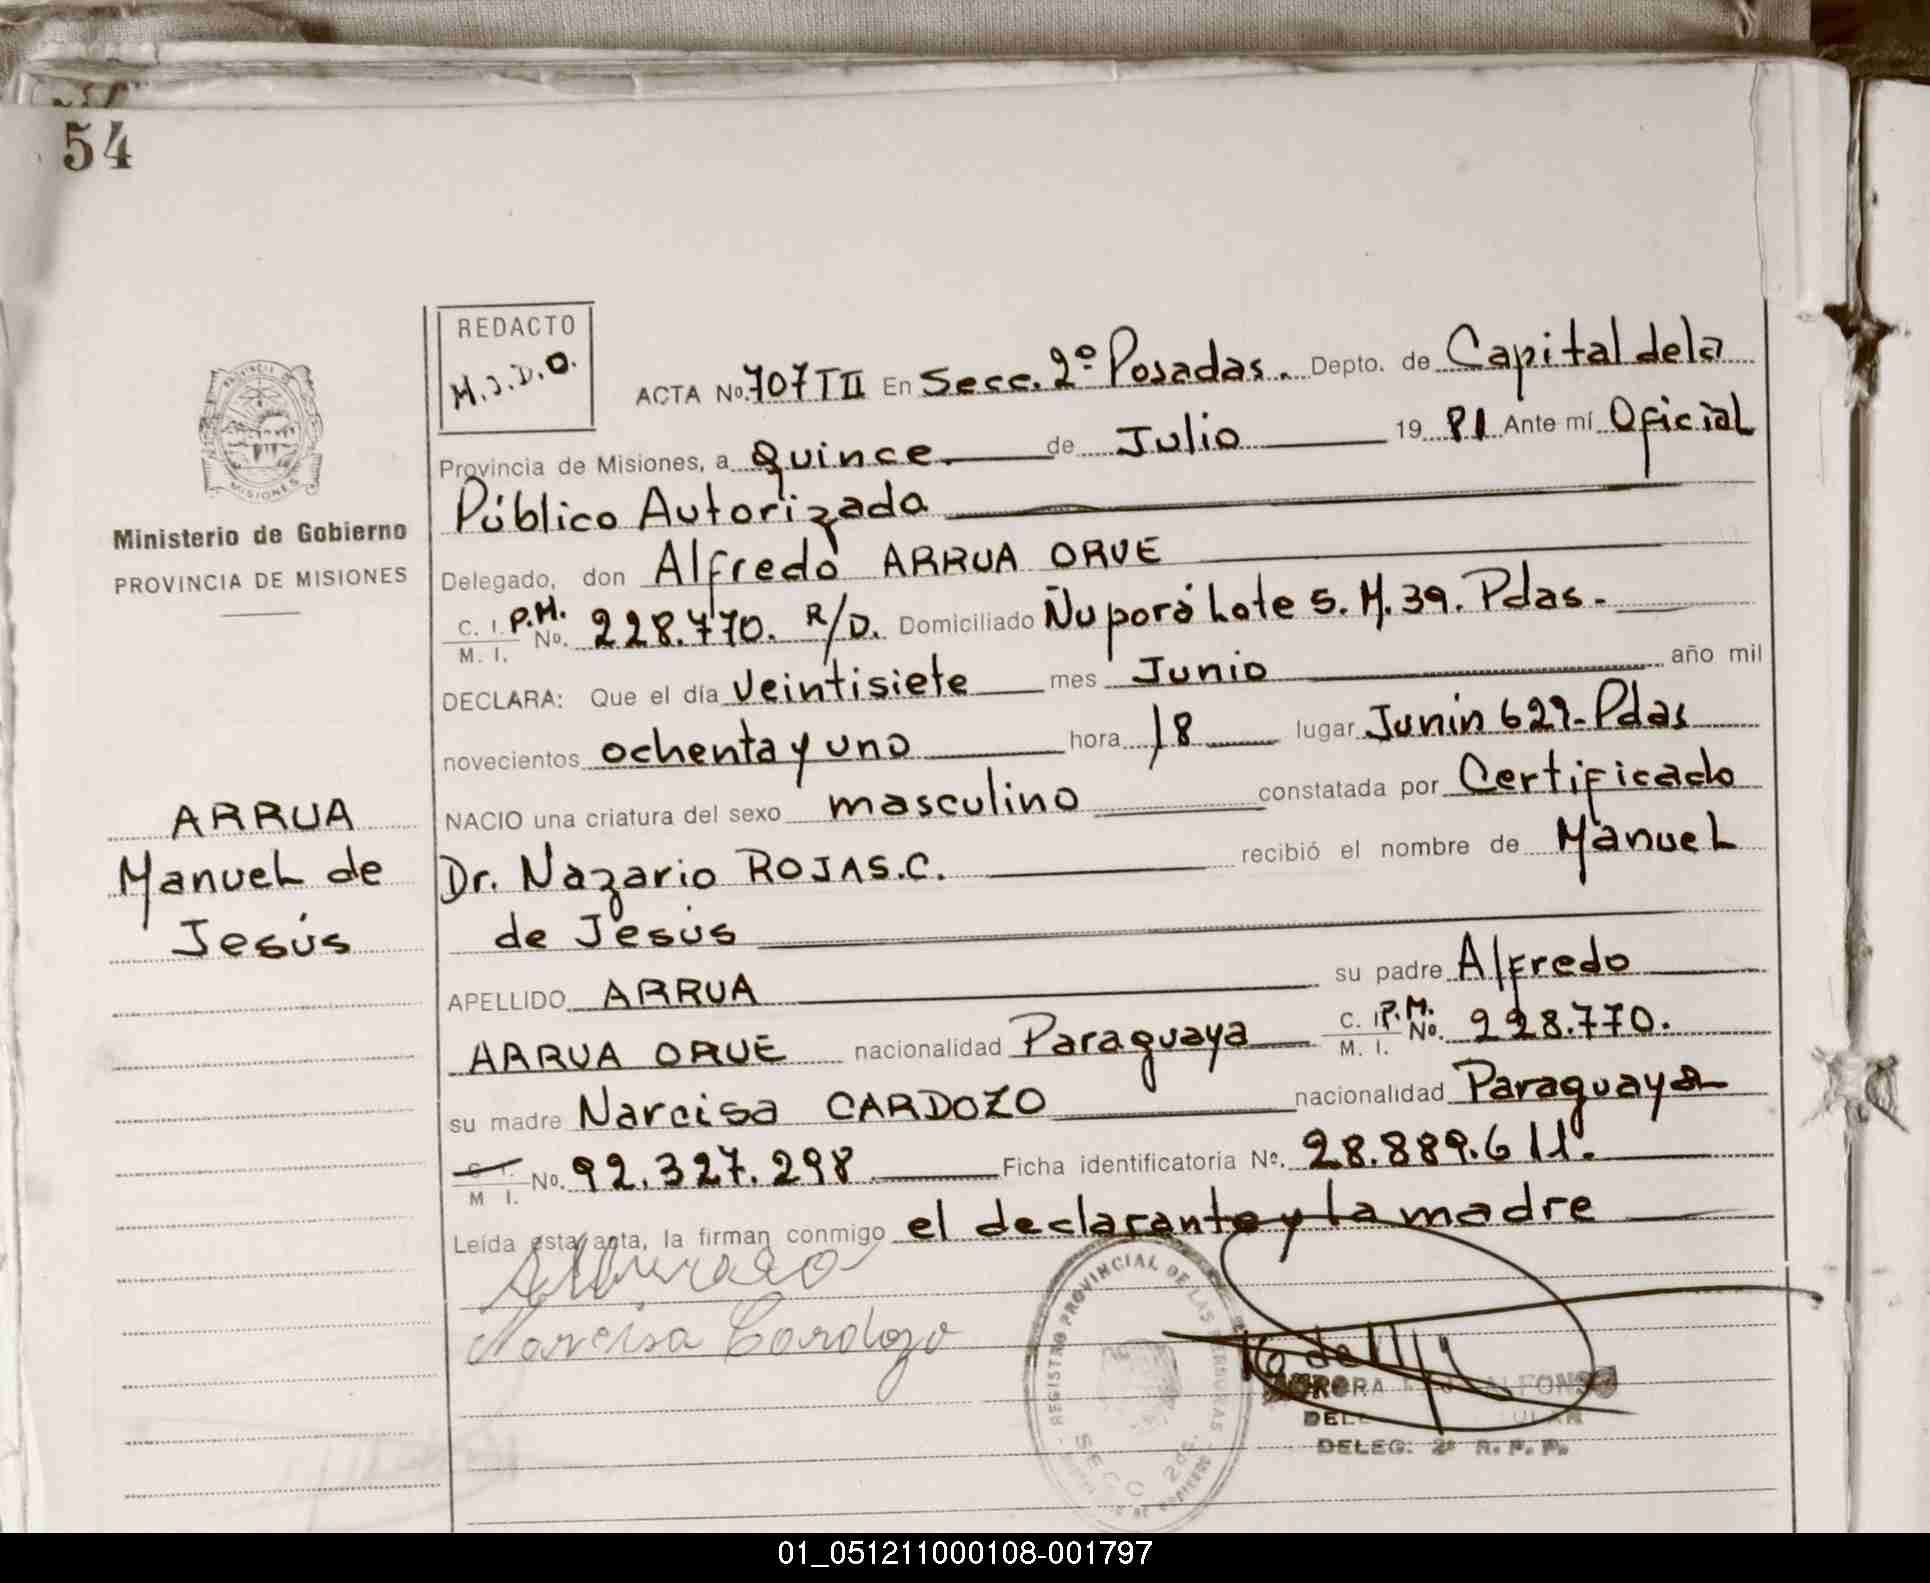 54
REDACTO
M.J.D.O.
ACTA No. 707 T II En Secc. 2º Posadas. Depto. de Capital de la
Provincia de Misiones, a Quince. de Julio 19 81 Ante mí Oficial
Público Autorizado
Delegado, don Alfredo ARRUA ORUE
C. I. P.M. M. I. No. 228.770. R/D. Domiciliado Ñu porá Lote 5. M. 39. Pdas.
DECLARA: Que el día veintisiete mes Junio año mil
novecientos ochenta y uno hora 18 lugar Junin 629- Pdas
NACIO una criatura del sexo masculino constatada por Certificado
Dr. Nazario ROJAS.C. recibió el nombre de Manuel
de Jesús
APELLIDO ARRUA su padre Alfredo
ARRUA ORUE nacionalidad Paraguaya C. I. P.M. M. I. No. 228.770.
su madre Narcisa CARDOZO nacionalidad Paraguaya
C. I. M. I. No. 92.327.298 Ficha identificatoria No. 28.889.611.
Leída esta acta, la firman conmigo el declarante y la madre
Narcisa Cardozo
PROVINCIA DE MISIONES
Ministerio de Gobierno
PROVINCIA DE MISIONES
ARRUA
Manuel de
Jesús
REGISTRO PROVINCIAL DE LAS PERSONAS
SECC 2da.
DELEG. 2ª R. P. P.
01_051211000108-001797